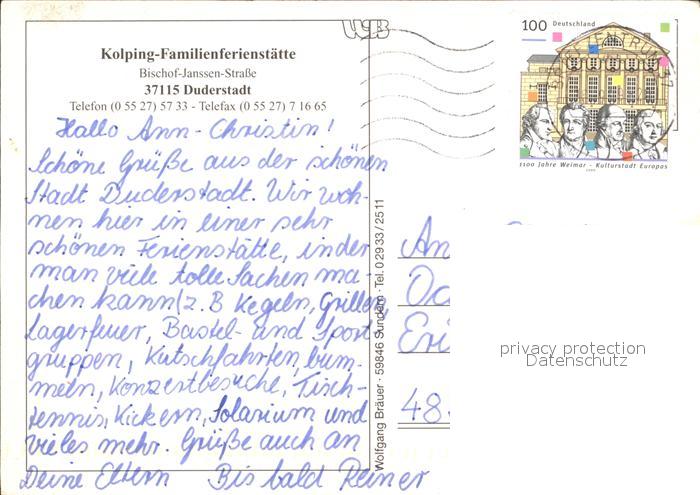 WB
Kolping-Familienferienstätte
Bischof-Janssen-Straße
37115 Duderstadt
Telefon (0 55 27) 57 33 - Telefax (0 55 27) 7 16 65
Hallo Ann-Christin!
Schöne Grüße aus der schönen
Stadt Duderstadt. Wir woh-
nen hier in einer sehr
schönen Ferienstätte, in der
man viele tolle Sachen ma-
chen kann (z.B Kegeln, Grillen,
Lagerfeuer, Bastel- und Sport-
gruppen, Kutschfahrten, bum-
meln, Konzertbesuche, Tisch-
tennis, Kickern, Solarium und
vieles mehr. Grüße auch an
Deine Eltern Bis bald Reiner
Wolfgang Bräuer · 59846 Sundern · Tel. 0 29 33 / 25 11
100 Deutschland
1100 Jahre Weimar - Kulturstadt Europas
1999
An
Oc
Eri
48
privacy protection
Datenschutz